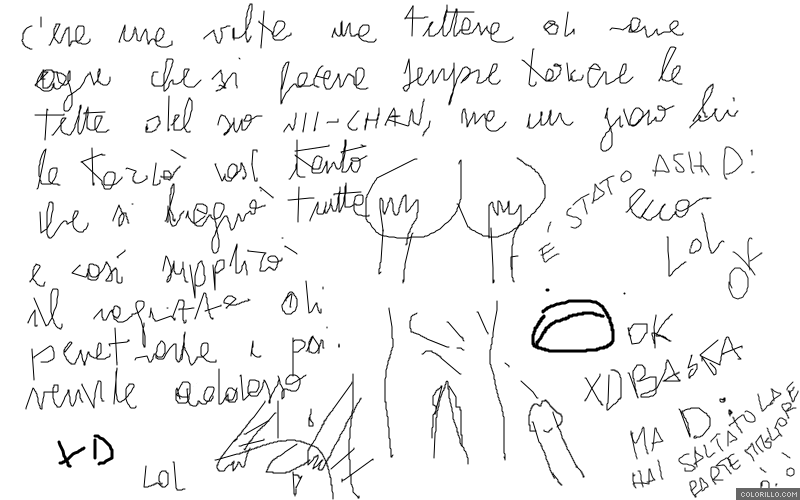 c'era una volta una tettona di nome
che si faceva sempre toccare le
tette dal suo NII-CHAN, ma un giorno lui
le toccò così tanto
che si bagnò tutta
e così supplicò
il di
penetrarla e poi
venirle addosso
È STATO ASH D:
ecco
LOL
OK
OK
XD BASTA
MA D:
HAI SALTATO LA
PARTE MIGLIORE
XD
LOL
COLORILLO.COM